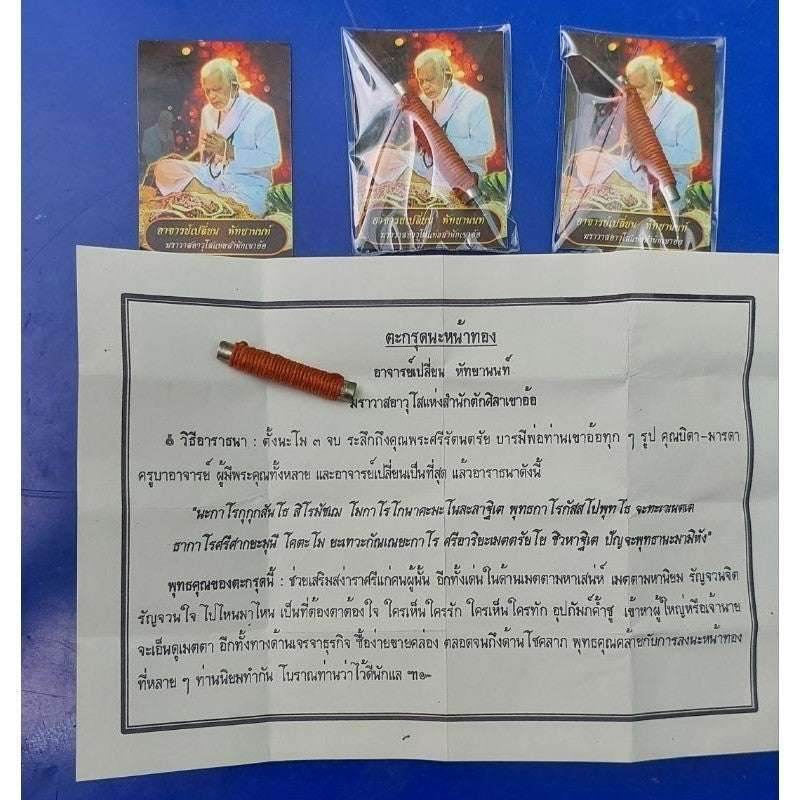 อาจารย์เปลี่ยน หัทยานนท์
ฆราวาสอาวุโสแห่งสำนักเขาอ้อ
อาจารย์เปลี่ยน หัทยานนท์
ฆราวาสอาวุโสแห่งสำนักเขาอ้อ
อาจารย์เปลี่ยน หัทยานนท์
ฆราวาสอาวุโสแห่งสำนักเขาอ้อ
ตะกรุดนะหน้าทอง
อาจารย์เปลี่ยน หัทยานนท์
ฆราวาสอาวุโสแห่งสำนักตักศิลาเขาอ้อ
วิธีอาราธนา : ตั้งนะโม ๓ จบ ระลึกถึงคุณพระศรีรัตนตรัย บารมีพ่อท่านเขาอ้อทุก ๆ รูป คุณบิดา-มารดา
ครูบาอาจารย์ ผู้มีพระคุณทั้งหลาย และอาจารย์เปลี่ยนเป็นที่สุด แล้วอาราธนาดังนี้
"นะกาโรกุกุกสันโธ สิโรมัชเฌ โมกาโรโกนาคะมะโนละลาฐิเต พุทธกาโรกัสสโปพุทโธ
ธากาโรศรีศากยะมุนี โคตะโม ยะเทวะกัณเณยะกาโร ศรีอาริยะเมตตรัยโย ชิวหาฐิเต ปัญจะพุทธานะมามิหัง"
พุทธคุณของตะกรุดนี้ : ช่วยเสริมสง่าราศรีแก่คนผู้นั้น อีกทั้งเด่นในด้านเมตตามหาเสน่ห์ เมตตามหานิยม รัญจวนจิต
รัญจวนใจ ไปไหนมาไหน เป็นที่ต้องตาต้องใจ ใครเห็นใครรัก ใครเห็นใครทัก อุปถัมภ์ค้ำชู เข้าหาผู้ใหญ่หรือเจ้านาย
จะเอ็นดูเมตตา อีกทั้งทางด้านเจรจาธุรกิจ ซื้อง่ายขายคล่อง ตลอดจนถึงด้านโชคลาภ พุทธคุณคล้ายกับการลงนะหน้าทอง
ที่หลาย ๆ ท่านนิยมทำกัน โบราณท่านว่าไว้ดีนักแล